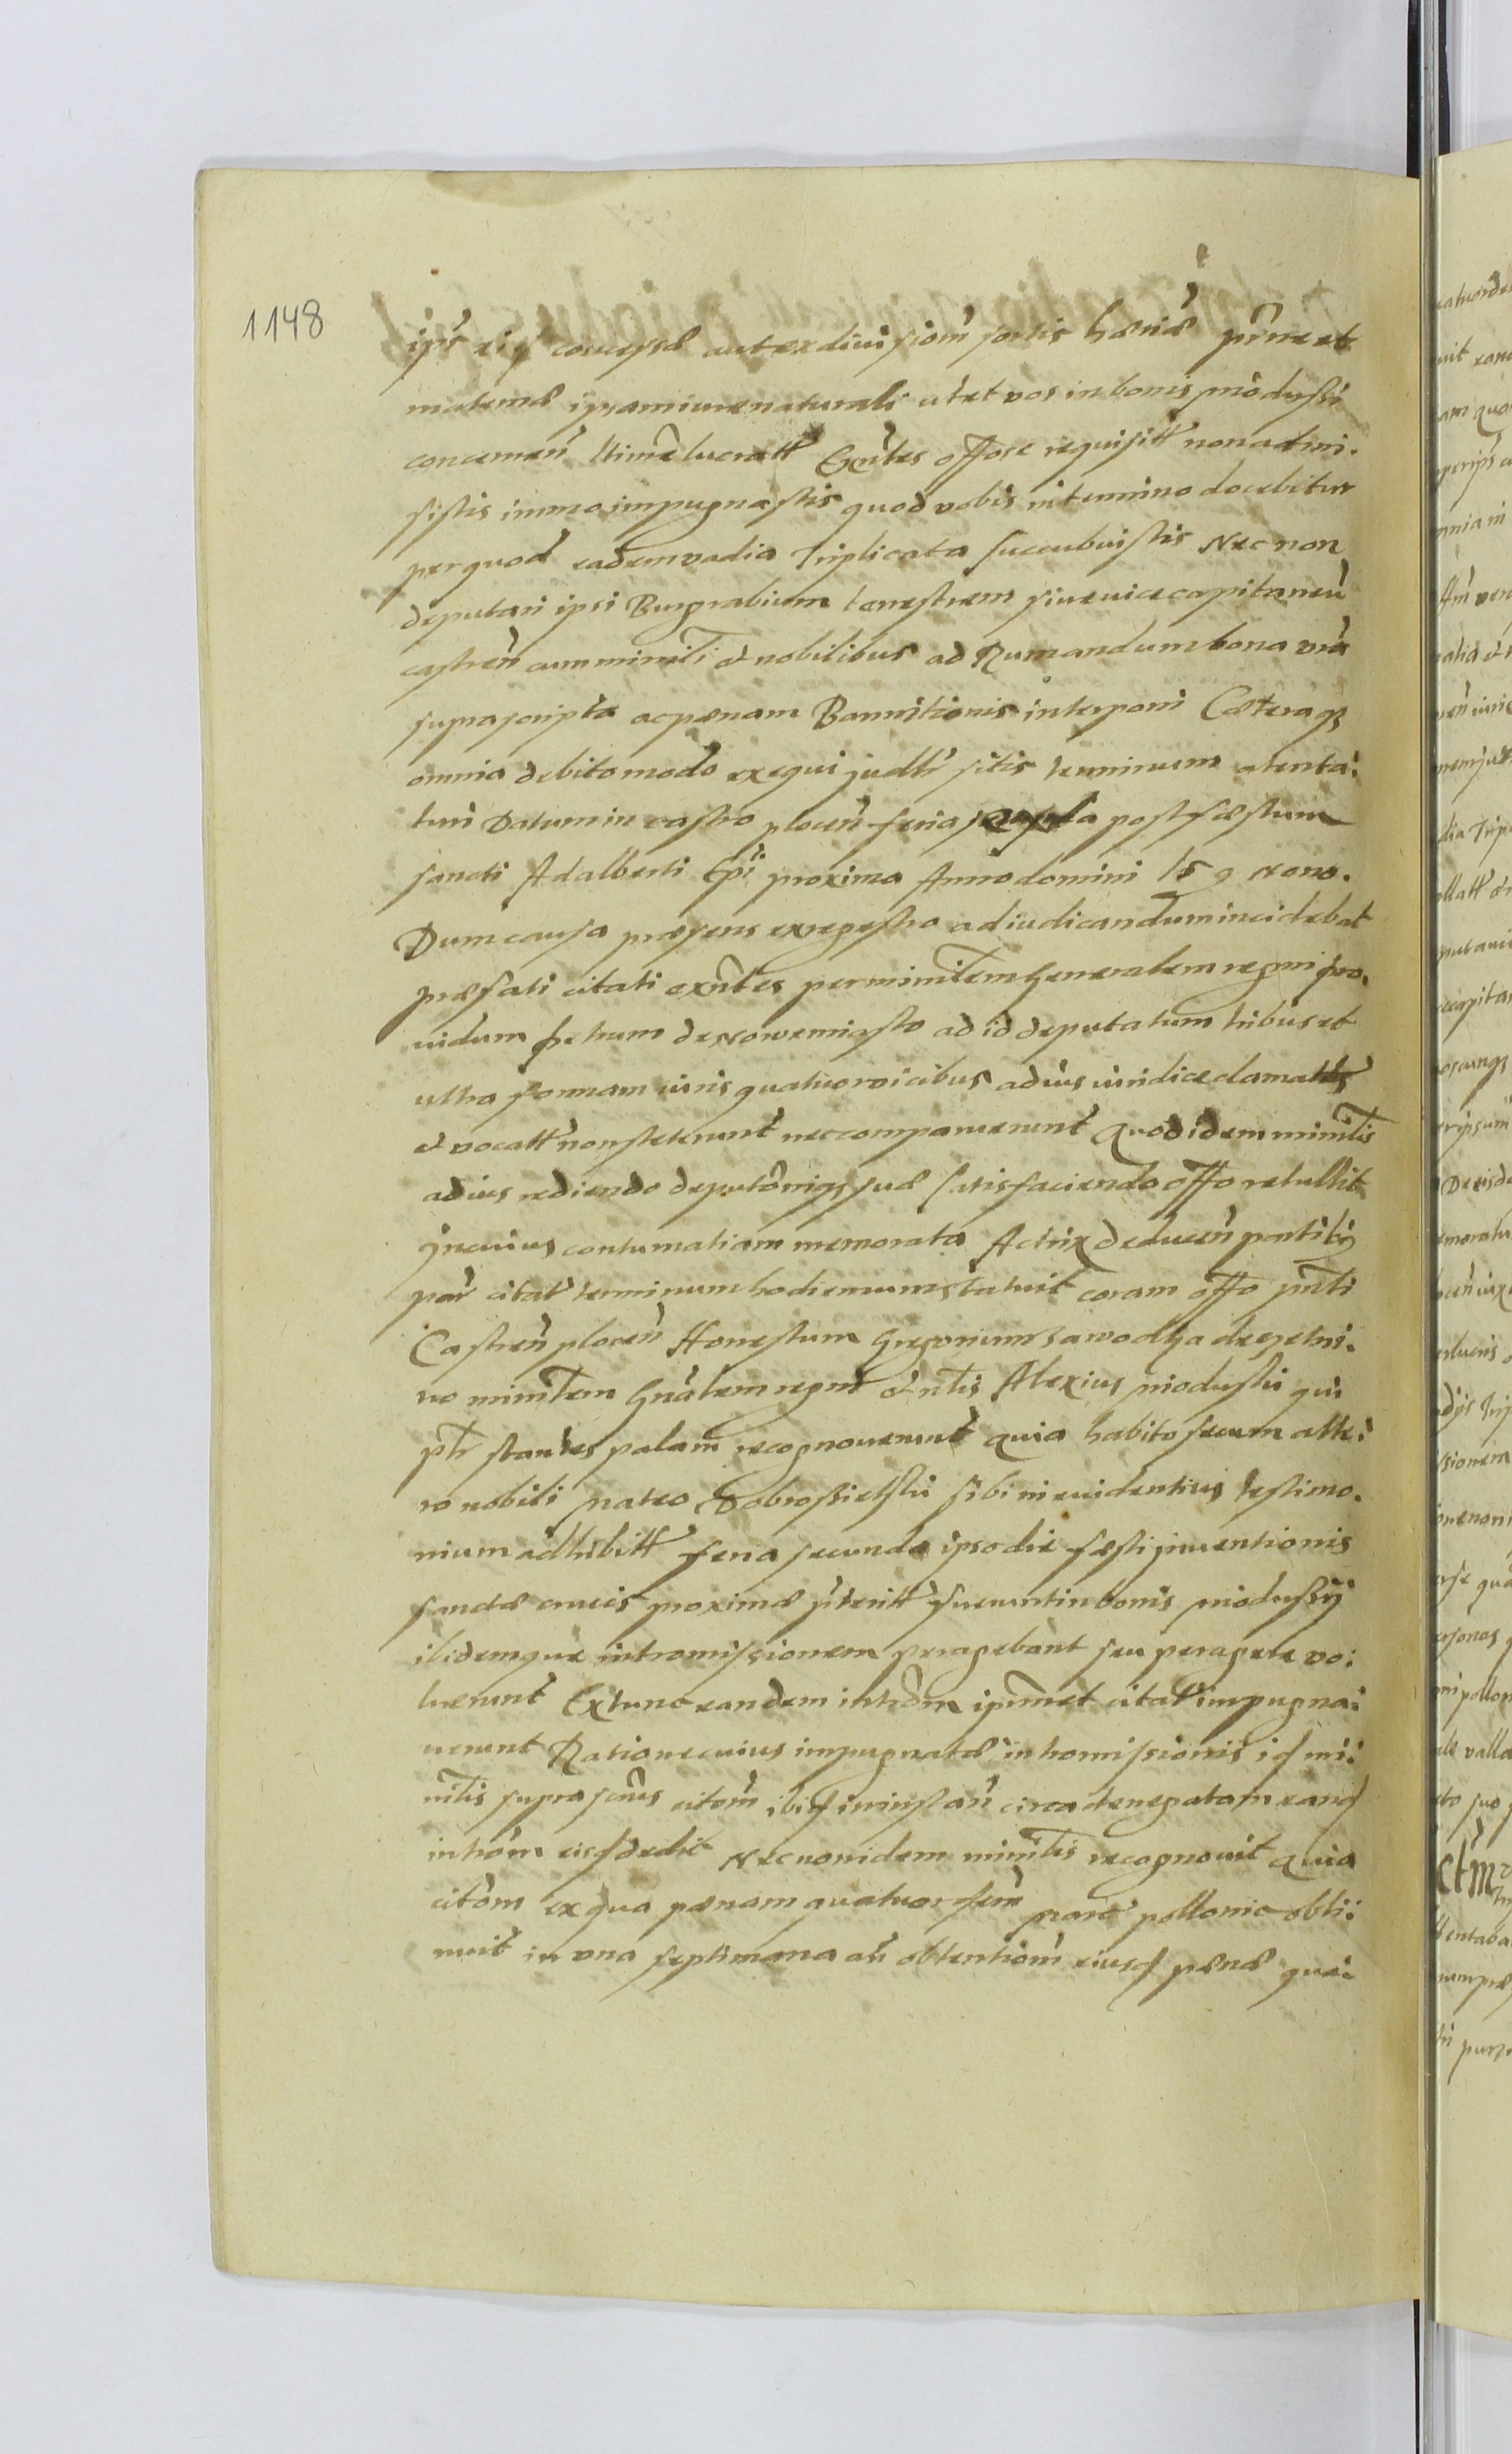 1148
ips eisd concessæ aut ex divisiom sortis hæriæ prnæ et
maternæ ipsam iure naturali ut et vos in bonis Miodussi
concernen ltime lucratt Exntes offose requisitt non admi.
sistis immo impugnastis quod vobis in termino docebitur
per quod eadem vadia Triplicata succubuistis Nec non
deputari ipsi Burgrabium terrestrem sive vicecapitaneu
castren cum minrli et nobilibus ad Rumandum bona vra
suprascripta ac pænam Bannitionis interponi Cæteraqз
omnia debito modo exequi judlr sitis terminum attenta:
turi Datum in castro plocen feria post fæstum
sancti Adalberti Epi proxima Anno domini 15 9 nono.
Dum causa præsens ex regestro adiudicandum incidebat
præfati citati exntes per minrlem Generalem regni pro.
vidum petrum de Nowemiasto ad id deputatum tribus et
ultra formam iuris quatuor vicibus ad ius iuridice clamatt
et vocatt non steterunt nec comparuerunt Quod idem minrlis
ad ius rediendo deputonisqз suæ satisfaciendo offo retullit
Jn cuius contumatiam memorata Actrix deducen partibз
par citat terminum hodiernum statuit coram offo pnti
Castren plocen Honestum Gregorium Sawodka de Jezetni.
no minrlem Gnalem regni et nlis Alexius Mioduski qui
plr stantes palam recognouerunt Quia habito secum alte:
ro nobili Mateo Dobrossielski sibi in euidentius testimo.
nium adhibitt feria secunda ipso die fæsti jnuentionis
sanctæ crucis proximæ pteritt fuerunt in bonis Miodussy
ibidemque intromissionem peragebant seu peragere vo:
luerunt Extunc eandem introm ipimet citat impugna:
uerunt Ratione cuius impugnatæ intromissionis id mi:
nrlis suprascrus citom ibid in instan circa denegatam eand
introm eisd dedit Nec non idem minrlis recognouit Quia
citom ex qua pænam quatuordem marc pollonic obti:
nuit in una septimana an obtentiom eiusd pænæ qua: